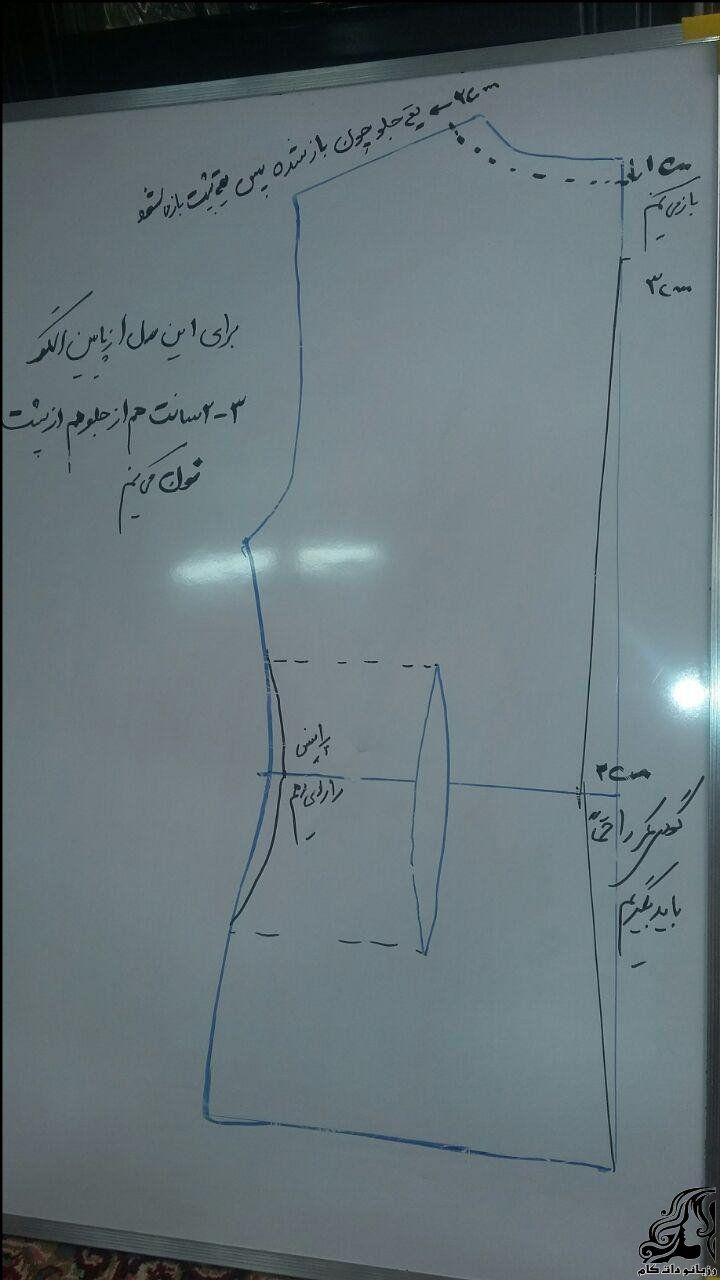 ۲cm ← یقه جلو چون باز شده پس یقه پشت باز نشود
۱cm
باز می کنم
۳cm
برای این مدل از پایین الگو
۲-۳ سانت هم از جلو هم از پشت
می کنیم
پنس
را
۲cm
گودی کمر را حتماً
باید بگیریم